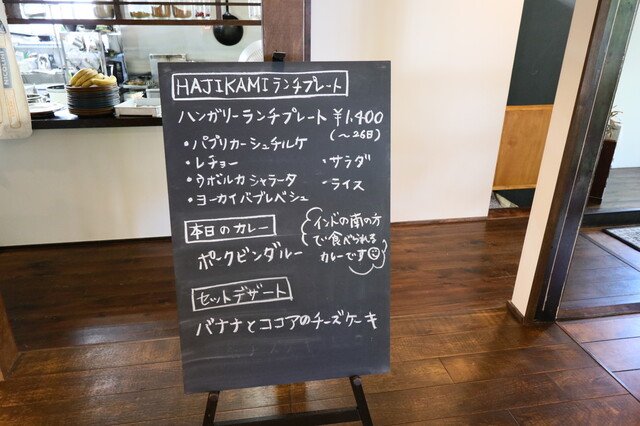 HAJIKAMIランチプレート
ハンガリーランチプレート ¥1,400
(〜26日)
・パプリカーシュチルケ
・レチョー ・サラダ
・ウボルカシャラータ ・ライス
・ヨーカイバブレベシュ
本日のカレー
ポークビンダルー
インドの南の方
で食べられる
カレーです
セットデザート
バナナとココアのチーズケーキ